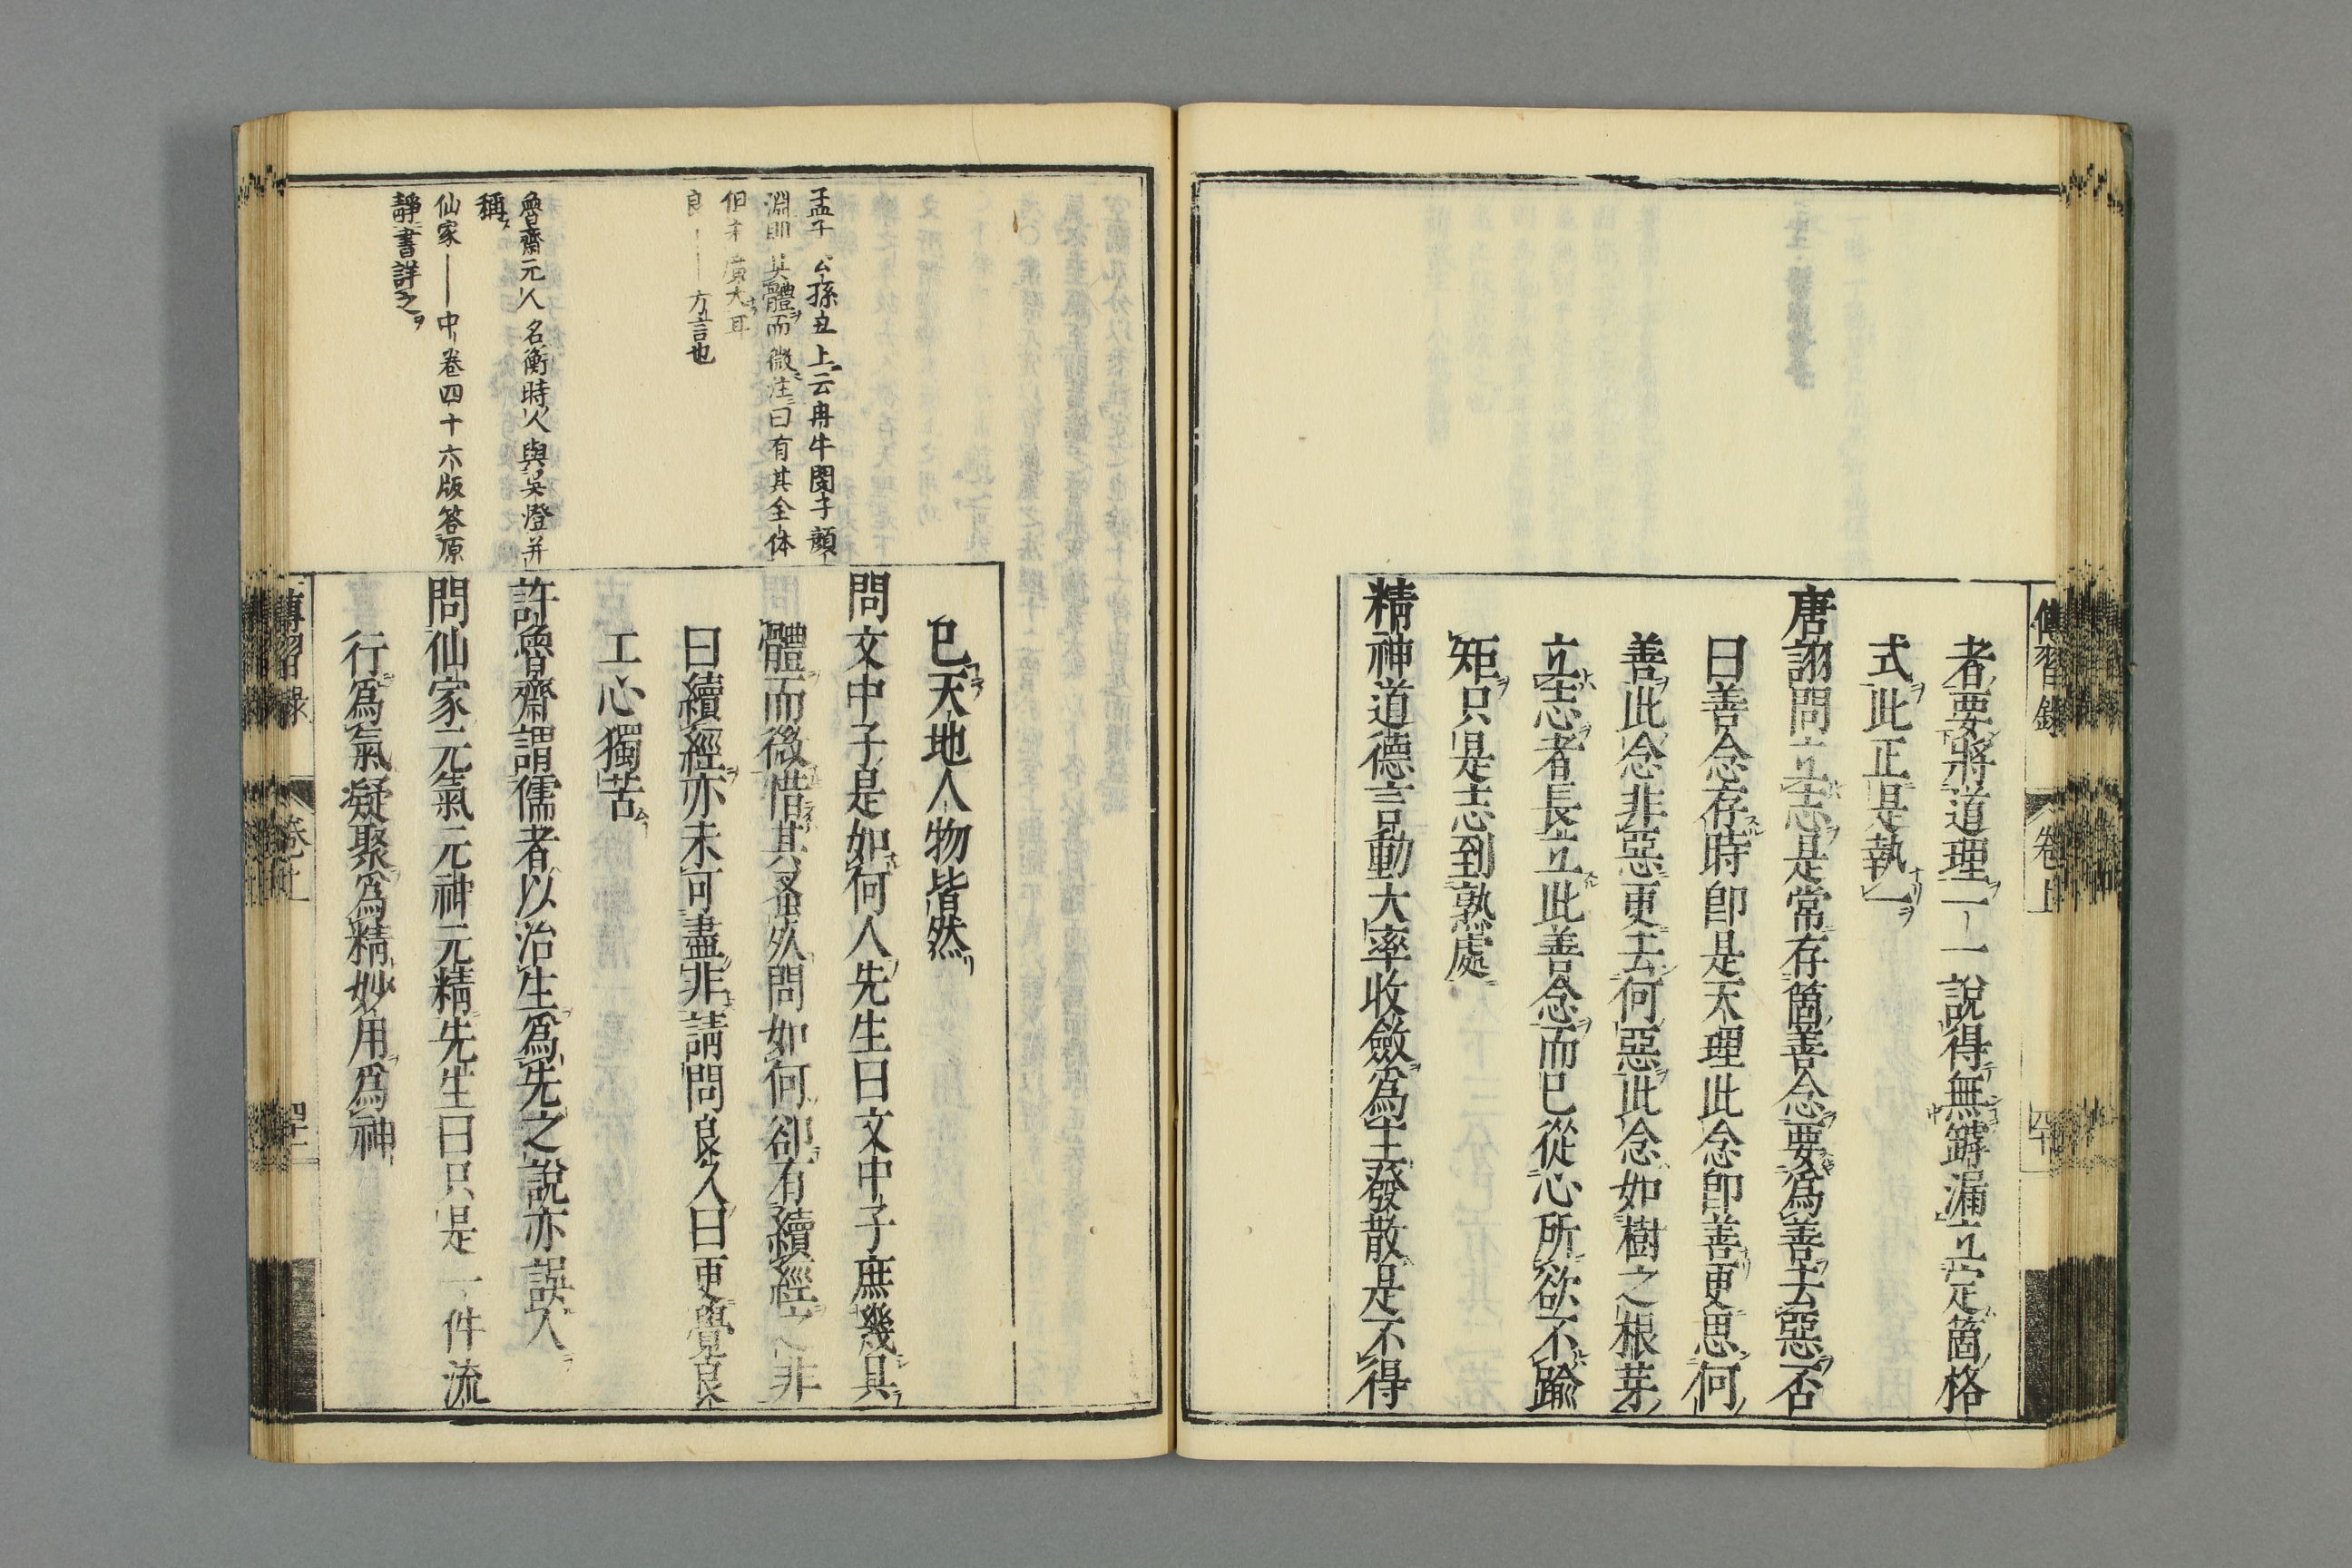 傳習錄 卷上 四十
者要將道理一一說得無罅漏立定箇格
式此正是執一
唐詡問立志是常存箇善念要爲善去惡否
曰善念存時卽是天理此念卽善更思何
善此念非惡更去何惡此念如樹之根芽
立志者長立此善念而已從心所欲不踰
矩只是志到熟處
精神道德言動大率收斂爲主發散是不得
已天地人物皆然
問文中子是如何人先生曰文中子庶幾具
體而微惜其蚤死問如何卻有續經之非
曰續經亦未可盡非請問良久曰更覺良
工心獨苦
許魯齋謂儒者以治生爲先之說亦誤人
問仙家元氣元神元精先生曰只是一件流
行爲氣凝聚爲精妙用爲神
孟子公孫丑上云冉牛閔子顏
淵則具體而微注曰有其全体
但未廣大耳
良——方言也
魯齋元人名衡時人與吳燈并
稱
仙家——中卷四十六版答原
靜書詳之
傳習錄 卷上